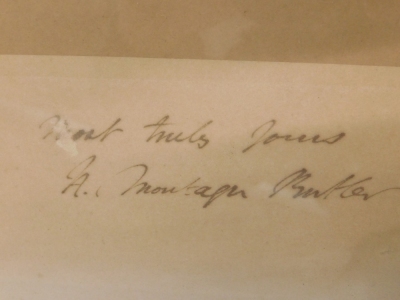 Most truly Yours
H. Montagu Butler